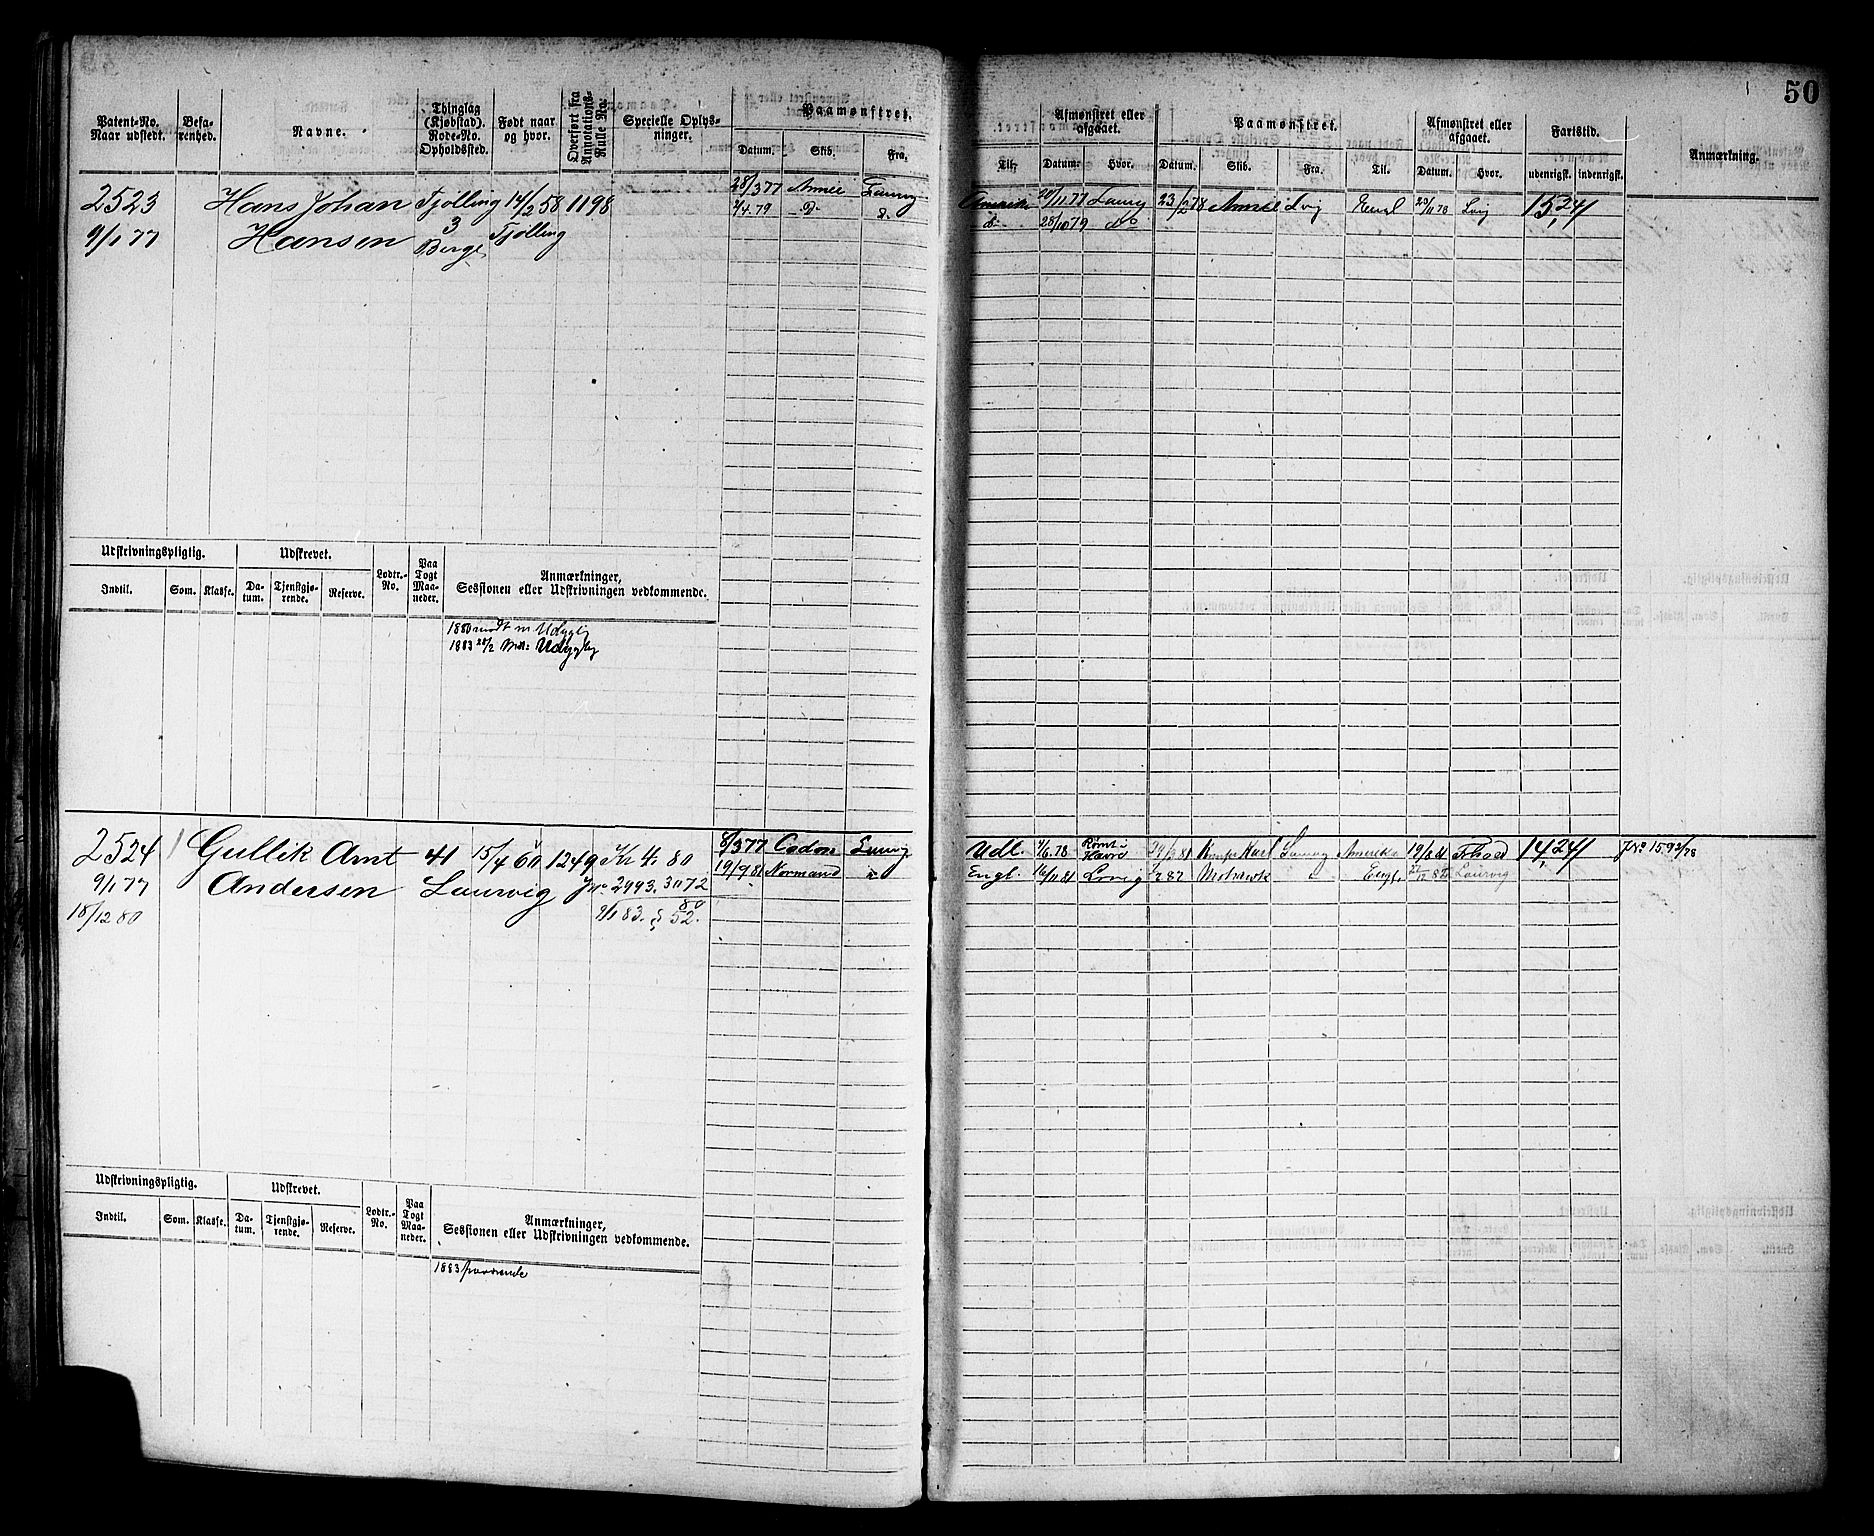 50
Patent-No. Naar udstedt.
Befarenhed.
Navne.
Thinglag (Kjøbstad). Rode-No. Opholdssted.
Født naar og hvor.
Overført fra Annotations-Rulle No.
Specielle Oplysninger.
Paamønstret.
Datum. Skib. Fra.
Til.
Afmønstret eller afgaaet.
Datum. Hvor.
Paamønstret.
Datum. Skib. Fra. Til.
Afmønstret eller afgaaet.
Datum. Hvor.
Fartstid.
udenrigsk. indenrigsk.
Anmærkning.
2523 Hans Johan Tjølling 14/2 58 1198
9/1 77 Hansen 3 Tjølling
Berge
28/3 77
2/4 79
Amerika 20/11 77 Laurvig 23/2 78 Lvig 20/11 78 Lvig 15,24
28/10 79 do
Udskrivningspligtig. Udskrevet. Lodtr.-No. Paa Togt Maaneder. Anmærkninger, Sessionen eller Udskrivningen vedkommende.
Indtil. Som. Klasse. Datum. Tjenstgjørende. Reserve.
1880 mødt
1883
2524 Gullik Amt 41 15/4 60 1249 80
9/1 77 Andersen Laurvig 2993. 3072
18/12 80 9/1 83. § 52.
8/3 77 Cadon Laurvig
19/9 81 Normand "
Udl. 4/6 78 Havre Laurvig Amerika 19/8 81 14,24 Jno 1593/78
Engl. 16/11 81 Lvig Engl. Laurvig
Udskrivningspligtig. Udskrevet. Lodtr.-No. Paa Togt Maaneder. Anmærkninger, Sessionen eller Udskrivningen vedkommende.
Indtil. Som. Klasse. Datum. Tjenstgjørende. Reserve.
1883 fraværende